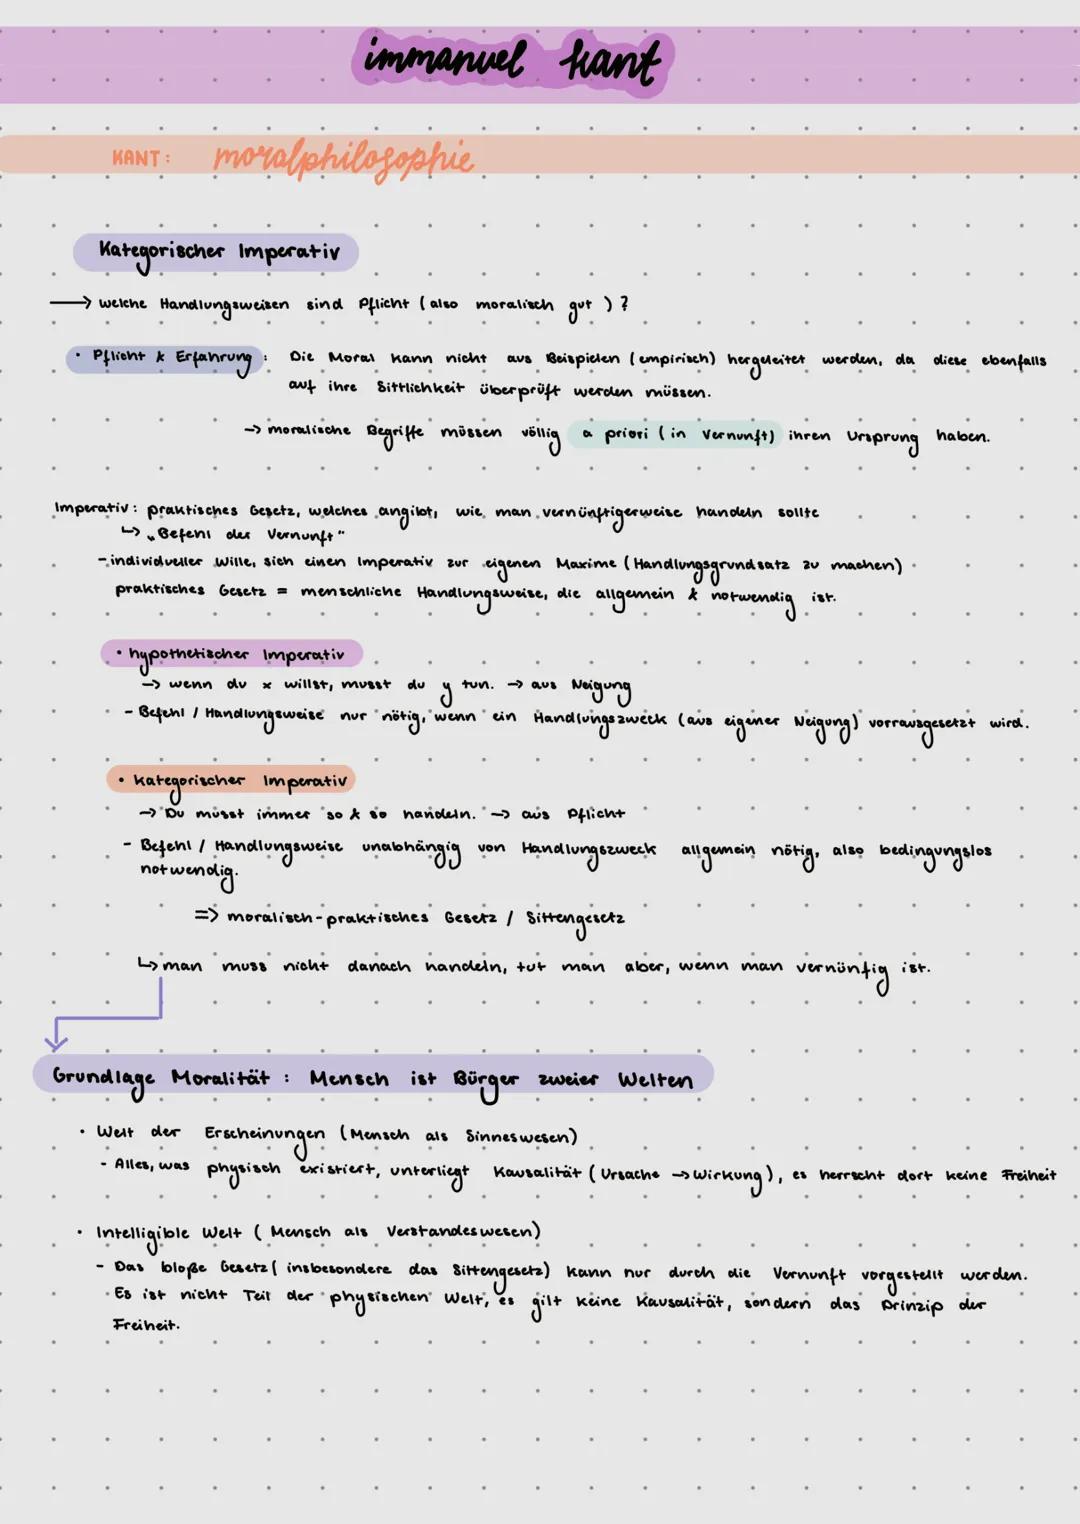 immanuel kant
KANT: moralphilosophie
Kategorischer Imperativ
→ welche Handlungsweisen sind Pflicht (also moralisch gut)?
• Pflicht & Erfahrung: Die Moral kann nicht aus Beispielen (empirisch) hergeleitet werden, da diese ebenfalls
auf ihre Sittlichkeit überprüft werden müssen.
→ moralische Begriffe müssen völlig a priori (in Vernunft) ihren Ursprung haben.
Imperativ: praktisches Gesetz, welches angibt, wie man vernünftigerweise handeln sollte
↳ „Befehl der Vernunft"
- individueller Wille, sich einen Imperativ zur eigenen Maxime (Handlungsgrundsatz zu machen)
praktisches Gesetz = menschliche Handlungsweise, die allgemein & notwendig ist.
• hypothetischer Imperativ
→ wenn du x willst, musst du y tun. → aus Neigung
- Befehl / Handlungsweise nur nötig, wenn ein Handlungszweck (aus eigener Neigung) vorrausgesetzt wird.
• kategorischer Imperativ
→ Du musst immer so & so handeln. → aus Pflicht
- Befehl / Handlungsweise unabhängig von Handlungszweck allgemein nötig, also bedingungslos
notwendig.
=> moralisch-praktisches Gesetz / Sittengesetz
↳ man muss nicht danach handeln, tut man aber, wenn man vernünfig ist.
Grundlage Moralität: Mensch ist Bürger zweier Welten
• Welt der Erscheinungen (Mensch als Sinneswesen)
- Alles, was physisch existiert, unterliegt Kausalität (Ursache → Wirkung), es herrscht dort keine Freiheit
• Intelligible Welt (Mensch als Verstandeswesen)
- Das bloße Gesetz (insbesondere das Sittengesetz) kann nur durch die Vernunft vorgestellt werden.
Es ist nicht Teil der physischen Welt, es gilt keine Kausalität, sondern das Prinzip der
Freiheit.